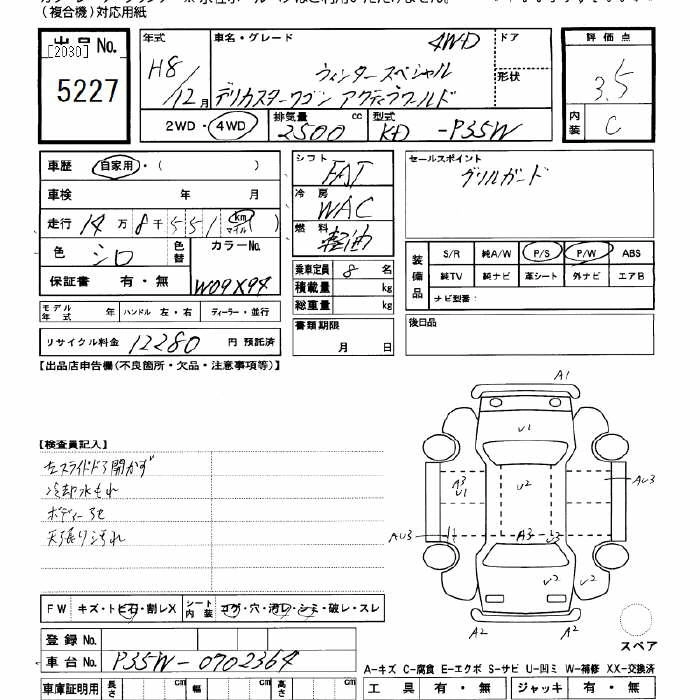 (複合機)対応用紙
出品No.
[2030]
5227
年式
H8/12月
車名・グレード
4WD
ウィンタースペシャル
デリカスターワゴン アクティブワールド
ドア
形状
評価点
3.5
内装
C
2WD・4WD
排気量
2500
cc
型式
KD-P35W
車歴
自家用・( )
車検 年 月
走行 14万8千551 km マイル( )
色 シロ
色替
カラーNo.
W09X94
保証書 有・無
モデル年式 年
ハンドル 左・右
ディーラー・並行
リサイクル料金 12280 円 預託済
シフト
FAT
冷房
WAC
燃料
軽油
乗車定員 8 名
積載量 kg
総重量 kg
書類期限
月 日
セールスポイント
グリルガード
装備品
S/R 純A/W P/S P/W ABS
純TV 純ナビ 革シート 外ナビ エアB
ナビ型番:
後日品
【出品店申告欄(不良箇所・欠品・注意事項等)】
【検査員記入】
左スライドドア開かず
冷却水もれ
ボディー
天張り汚れ
FW キズ・トビ石・割レX
シート内装 コゲ・穴・汚レ・シミ・破レ・スレ
登録No.
車台No. P35W-0702364
車庫証明用 長さ cm 幅 cm 高さ cm
A1
U1
A3
U1
U2
AU3
AU3
A3
U3
U2
U2
A2
A2
スペア
A-キズ C-腐食 E-エクボ S-サビ U-凹ミ W-補修 XX-交換済
工具 有・無 ジャッキ 有・無